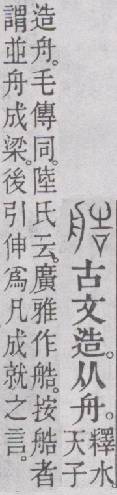 艁古文造。从舟。釋水
天子
造舟。毛傳同。陸氏云。廣雅作艁。按艁者
謂並舟成梁。後引伸爲凡成就之言。